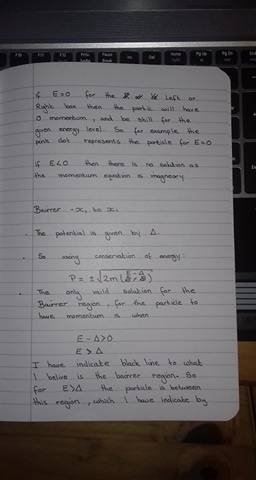 if E=0 for the Left or
Right box then the partic will have
0 momentum, and be still for the
given energy level. So for example the
pink dot represents the particle for E=0
if E<0 then there is no solution as
the momentum equation is imagneary
Bairrer -x, to x,
The potential is given by Δ.
So using conservation of energy:
P = ±√2m(E-Δ)
The only vaild solution for the
Bairrer region, for the particle to
have momentum is when
E - Δ>0
E > Δ
I have indicate black line to what
I belive is the bairrer region. So
for E>Δ the particle is between
this region, which I have indicate by